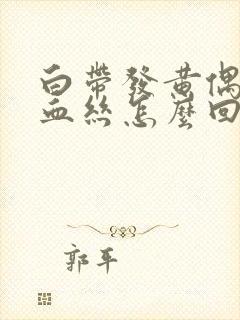 白帶發黄偶
血丝怎麼回
郭平